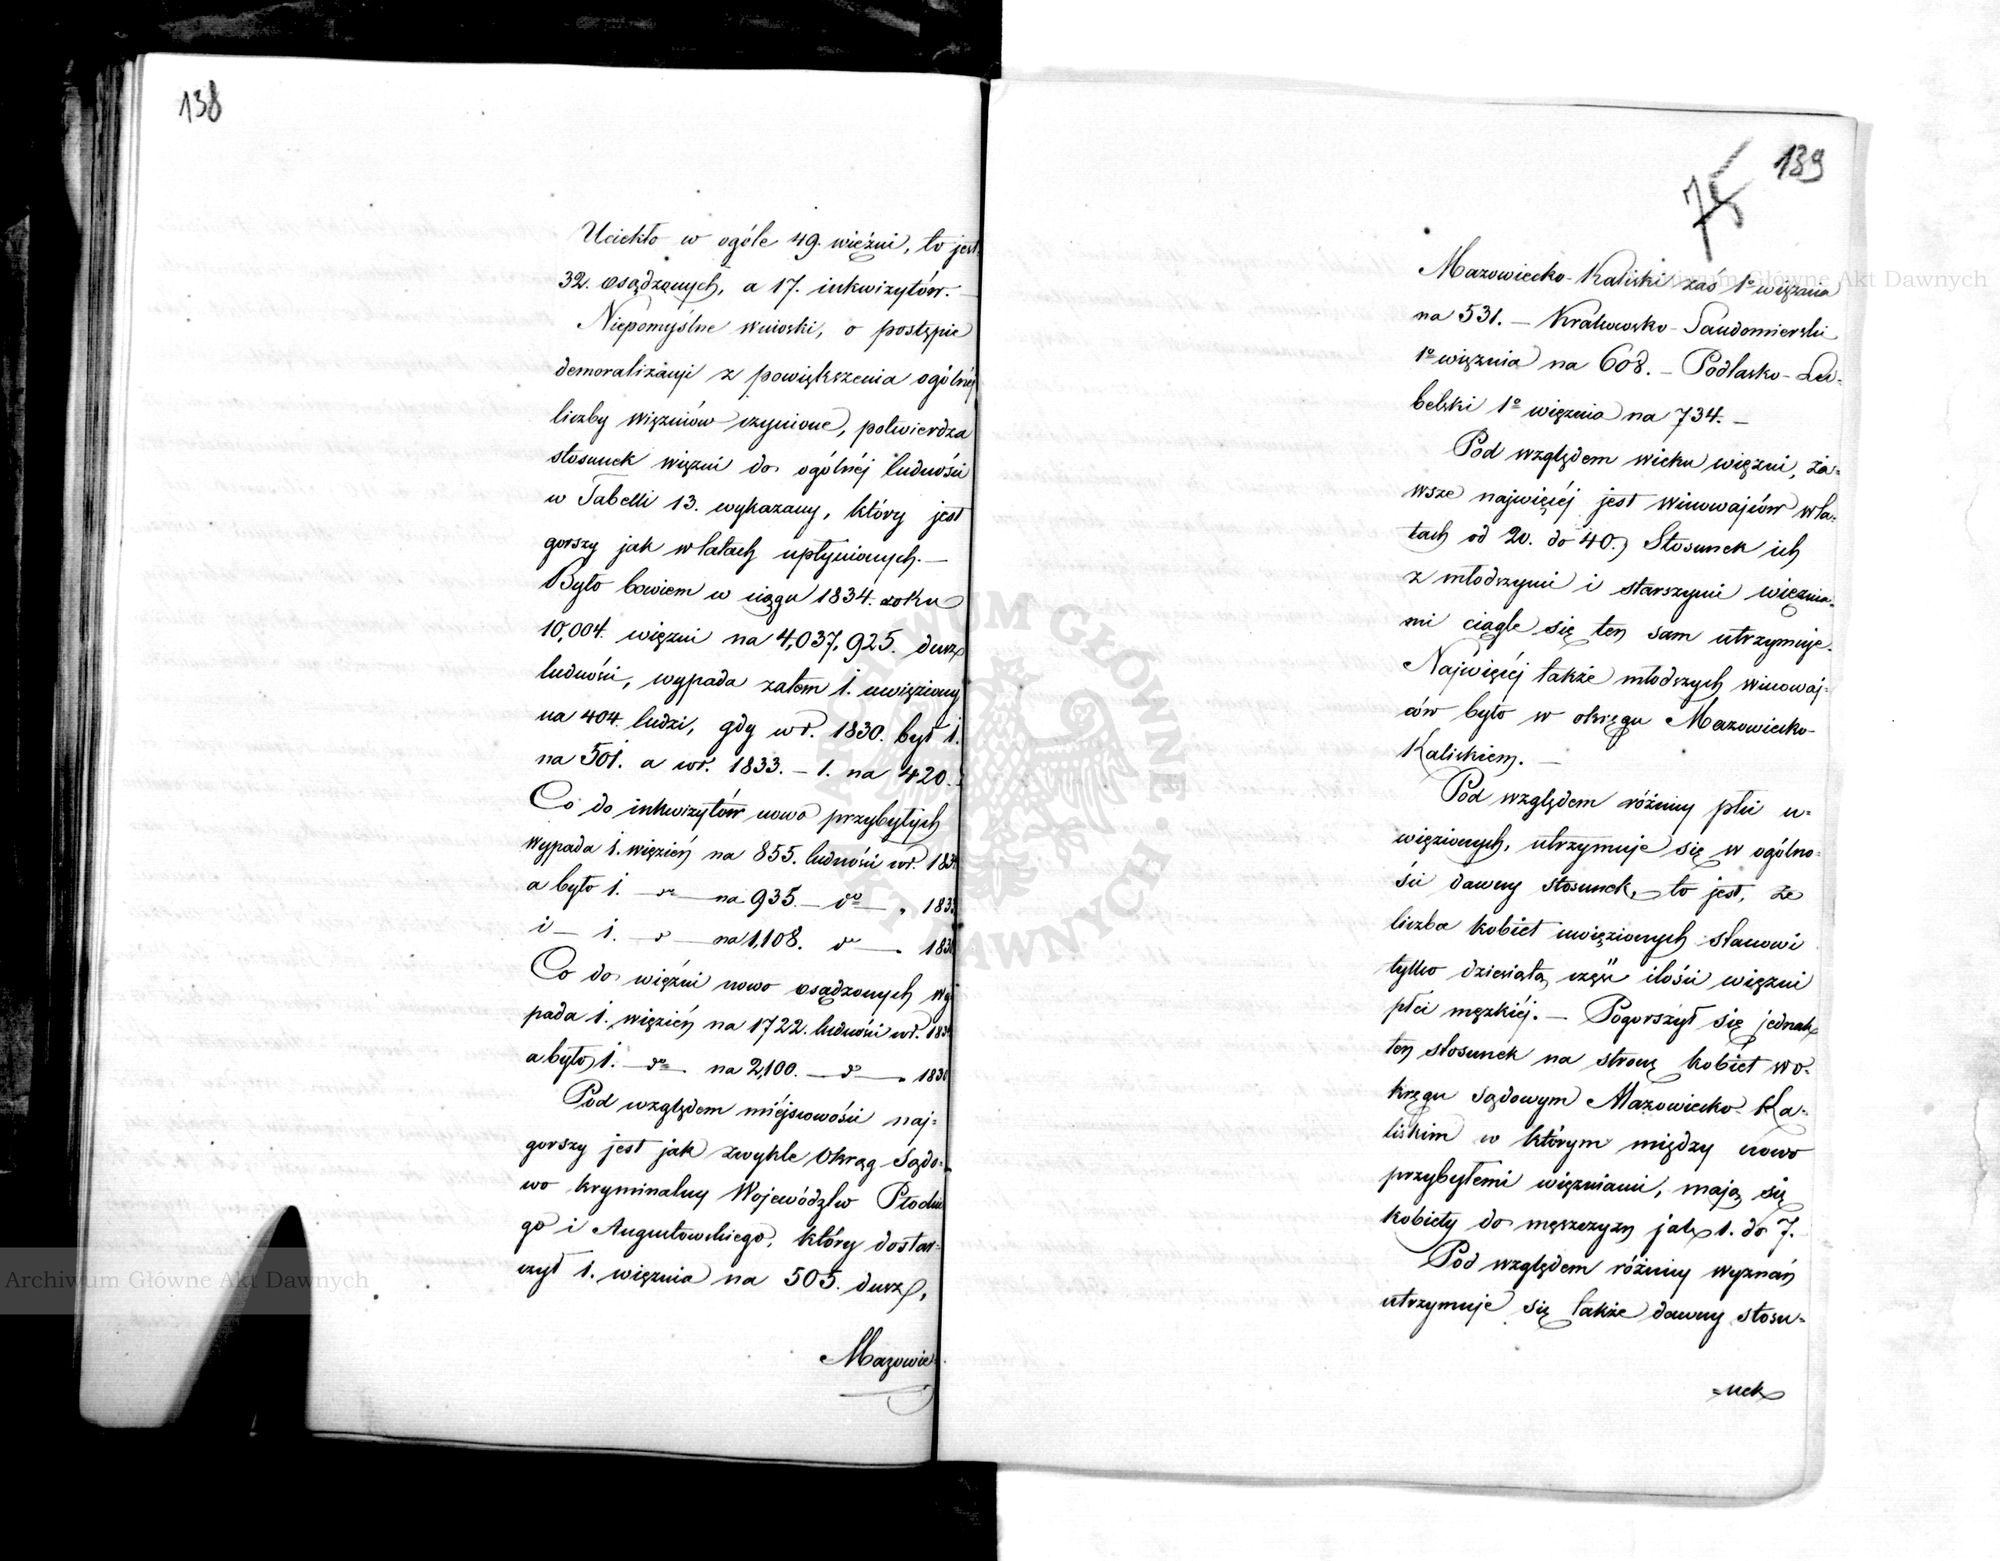 138
Uciekło w ogóle 49. więźni, to jest
32. osądzonych, a 17. inkwizytów. —
Niepomyślne wnioski, o postępie
demoralizacyi z powiększenia ogólnéj
liczby więzniów czynione, potwierdza
stosunek więzni do ogólnéj ludności
w Tabelli 13. wykazany, który jest
gorszy jak w latach upłynionych. —
Było bowiem w ciągu 1834. roku
10,004. więzni na 4,037,925. dusz
ludności, wypada zatem 1. uwięziony
na 404. ludzi, gdy w r. 1830. był 1.
na 501. a w r. 1833. — 1. na 420. —
Co do inkwizytów nowo przybyłych
wypada 1. więzień na 855. ludności w r. 1834
a było 1. — do — na 935. — do — " 1833
i — 1. — do — na 1,108. do — " 1830
Co do więźni nowo osądzonych wy
pada 1. więzień na 1722. ludności w r. 1834
a było 1. — do — na 2,100. — do — " 1830
Pod względem miéjscowości naj-
gorszy jest jak zwykle Okrąg Sądo-
wo kryminalny Województw Płockie
go i Augustowskiego, który dostar-
czył 1. więznia na 505. dusz,
Mazowie-
139
75
Mazowiecko-Kaliski zaś 1o więznia
na 531. — Krakowsko-Sandomierski
1o więznia na 608. — Podlasko-Lu-
belski 1o więznia na 734. —
Pod względem wieku więzni, za-
wsze najwięcéj jest winowajców w la-
tach od 20. do 40. Stosunek ich
z młodszymi i starszymi więznia-
mi ciągle się ten sam utrzymuje.
Najwięcéj także młodszych winowaj-
ców było w okręgu Mazowiecko-
Kaliskiem. —
Pod względem różnicy płci u-
więzionych, utrzymuje się w ogólno-
ści dawny stosunek, to jest, że
liczba kobiet uwięzionych stanowi
tylko dziesiątą część ilości więzni
płci męzkiéj. — Pogorszył się jednak
ten stosunek na stronę kobiet w o-
kręgu sądowym Mazowiecko-Ka-
liskim w którym między nowo
przybyłemi więzniami, mają się
kobiety do męszczyzn jak 1. do 7.
Pod względem różnicy wyznań
utrzymuje się także dawny stosu-
-nek
Archiwum Główne Akt Dawnych
Archiwum Główne Akt Dawnych
ARCHIWUM GŁÓWNE AKT DAWNYCH